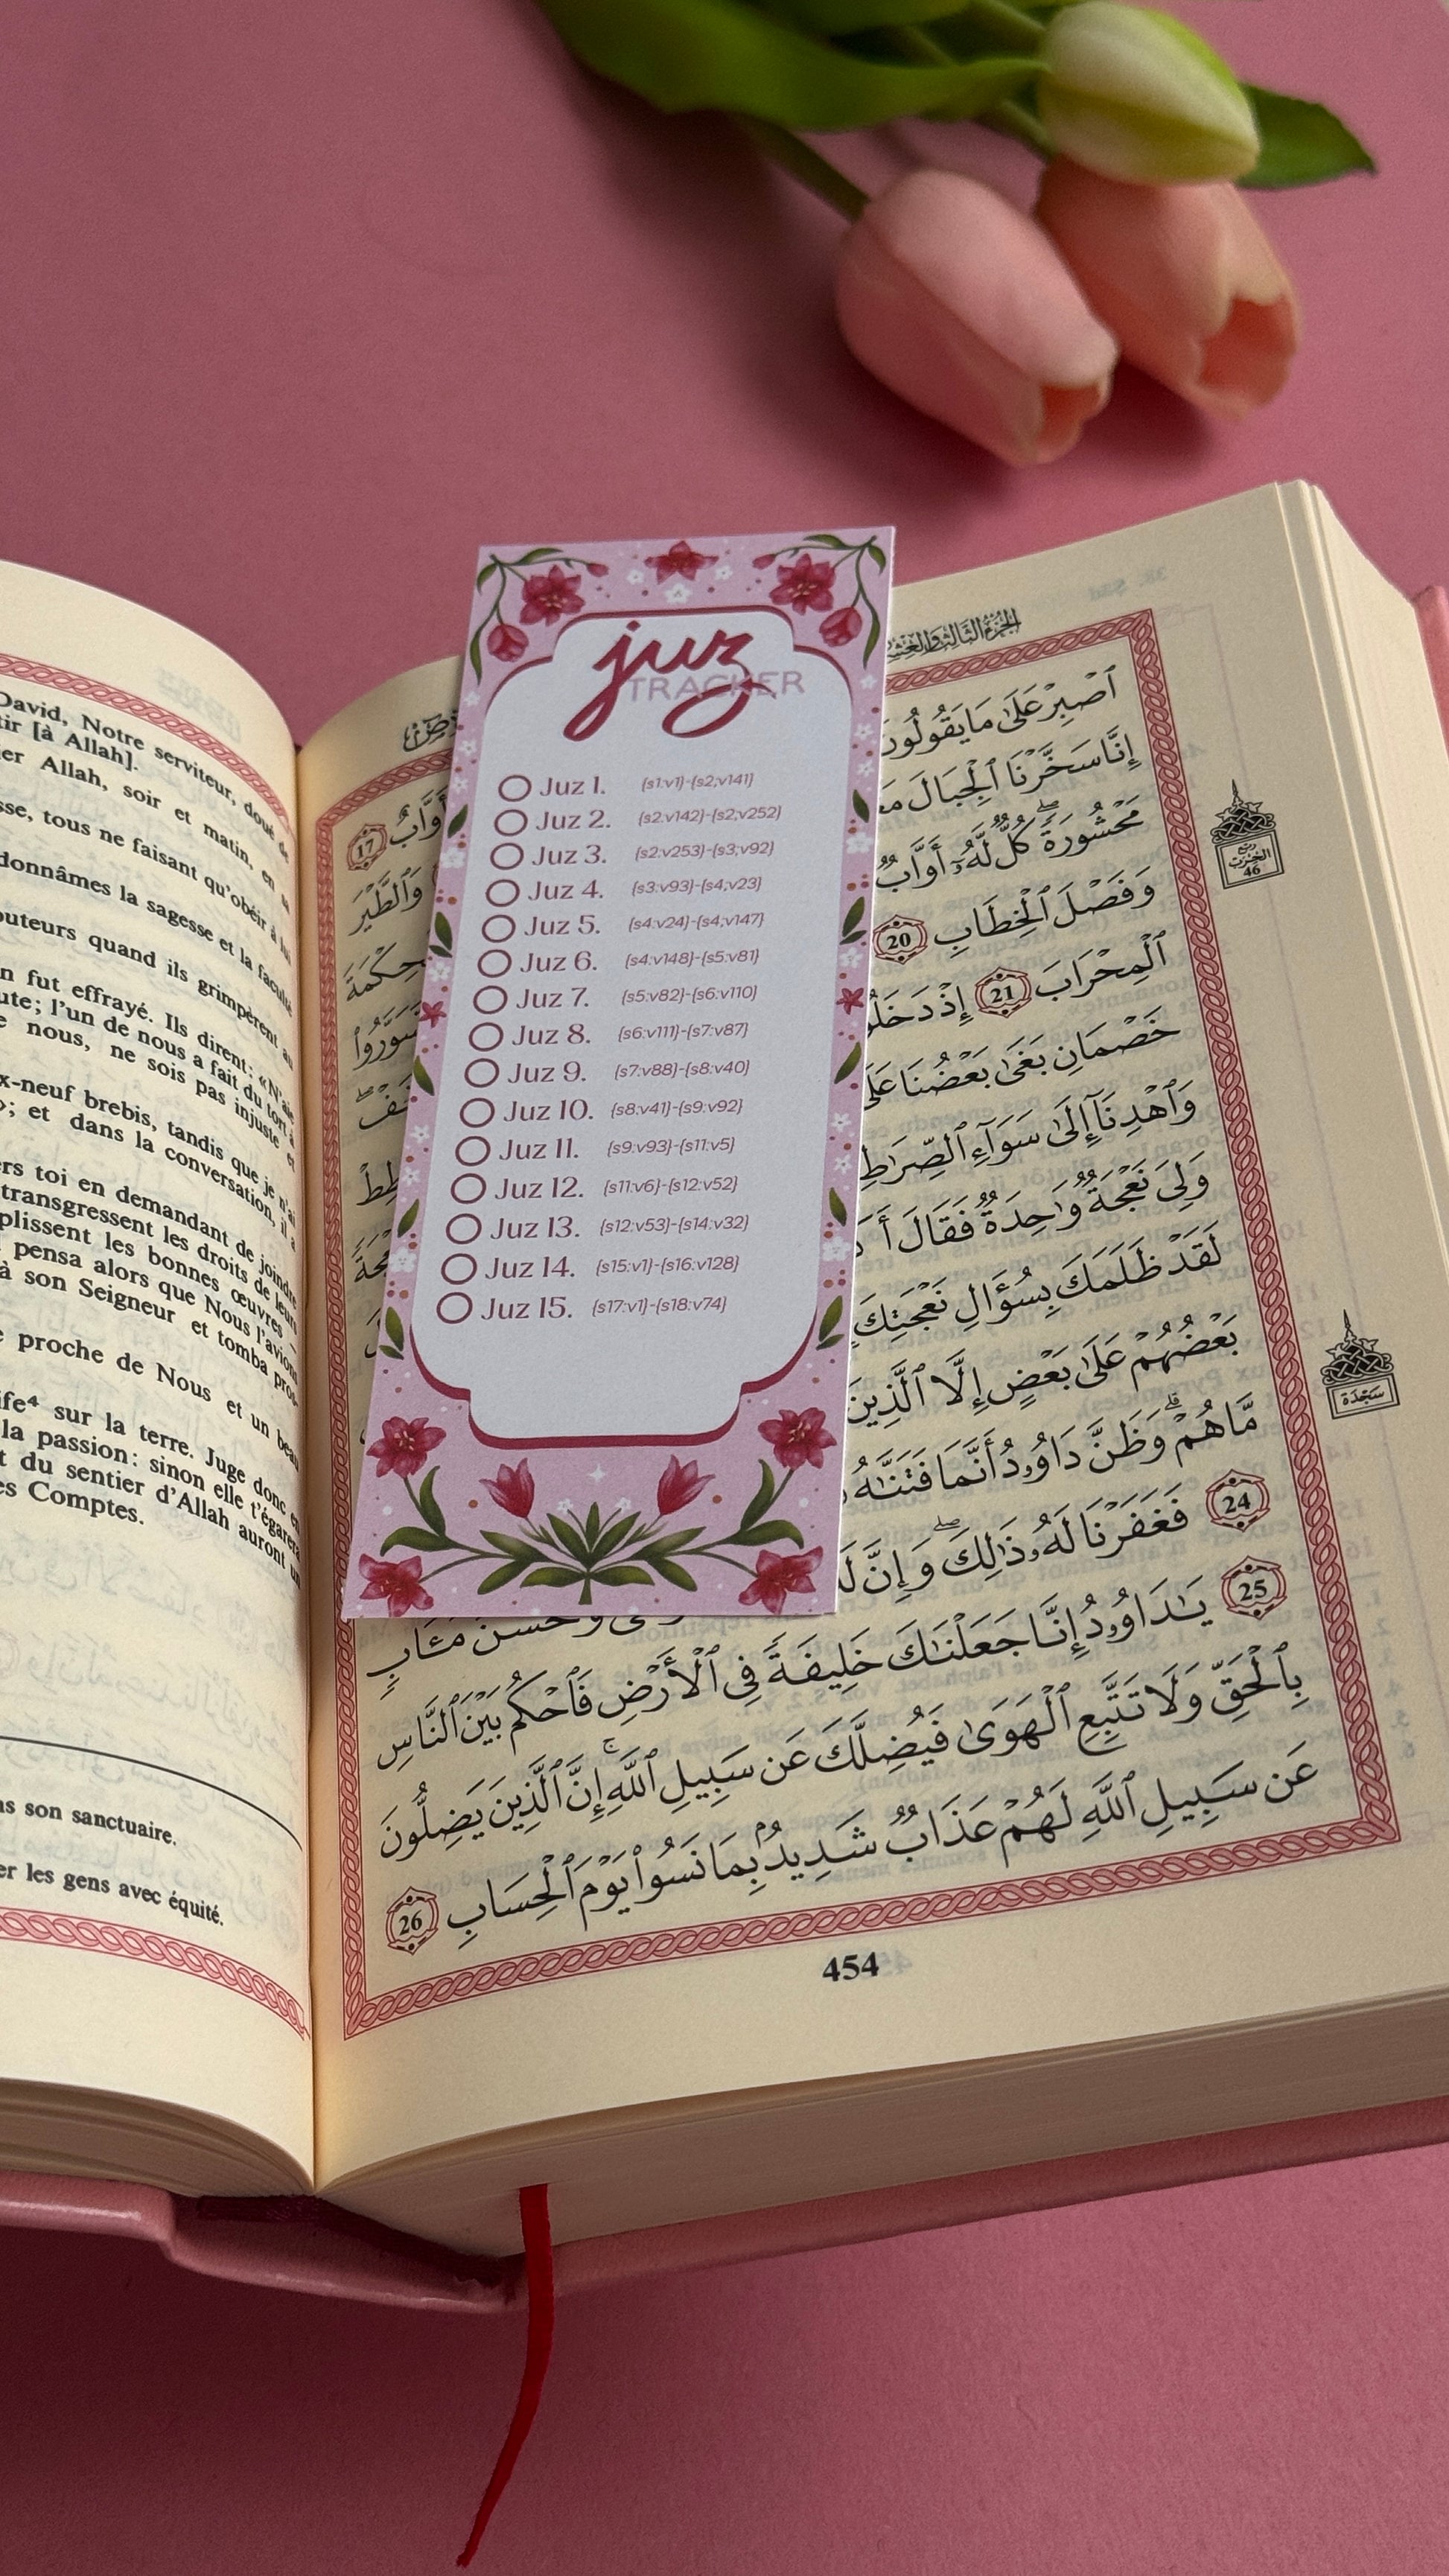 juz
TRACKER
Juz 1. (s1:v1)-(s2;v141)
Juz 2. (s2:v142)-(s2;v252)
Juz 3. (s2:v253)-(s3;v92)
Juz 4. (s3:v93)-(s4;v23)
Juz 5. (s4:v24)-(s4;v147)
Juz 6. (s4:v148)-(s5:v81)
Juz 7. (s5:v82)-(s6:v110)
Juz 8. (s6:v111)-(s7:v87)
Juz 9. (s7:v88)-(s8:v40)
Juz 10. (s8:v41)-(s9:v92)
Juz 11. (s9:v93)-(s11:v5)
Juz 12. (s11:v6)-(s12:v52)
Juz 13. (s12:v53)-(s14:v32)
Juz 14. (s15:v1)-(s16:v128)
Juz 15. (s17:v1)-(s18:v74)
David, Notre serviteur, doué de
tir [à Allah].
er Allah, soir et matin, en
sse, tous ne faisant qu'obéir à lui
donnâmes la sagesse et la faculté
outeurs quand ils grimpèrent au
n fut effrayé. Ils dirent: «N'aie
ute; l'un de nous a fait du tort à
e nous, ne sois pas injuste et
x-neuf brebis, tandis que je n'ai
»; et dans la conversation, il a
ers toi en demandant de joindre
transgressent les droits de leurs
plissent les bonnes œuvres –
pensa alors que Nous l'avions
à son Seigneur et tomba pros-
e proche de Nous et un beau
ife⁴ sur la terre. Juge donc en
la passion: sinon elle t'égarera
t du sentier d'Allah auront un
es Comptes.
ns son sanctuaire.
er les gens avec équité.
الجزء الثالث والعشر
ٱصۡبِرۡ عَلَىٰ مَا يَقُولُونَ
أَوَّابٌ 17
إِنَّا سَخَّرۡنَا ٱلۡجِبَالَ مَعَ
وَٱلطَّيۡرَ
مَحۡشُورَةٗۖ كُلّٞ لَّهُۥٓ أَوَّابٞ
حِكۡمَةَ
وَفَصۡلَ ٱلۡخِطَابِ 20
سَوَّرُواْ
ٱلۡمِحۡرَابَ 21 إِذۡ دَخَلُو
خَفۡۖ
خَصۡمَانِ بَغَىٰ بَعۡضُنَا عَلَىٰ
طِطۡ
وَٱهۡدِنَآ إِلَىٰ سَوَآءِ ٱلصِّرَٰطِ
وَلِيَ نَعۡجَةٞ وَٰحِدَةٞ فَقَالَ أَ
لَقَدۡ ظَلَمَكَ بِسُؤَالِ نَعۡجَتِكَ
بَعۡضُهُمۡ عَلَىٰ بَعۡضٍ إِلَّا ٱلَّذِينَ
مَّا هُمۡۗ وَظَنَّ دَاوُۥدُ أَنَّمَا فَتَنَّٰهُ
24 فَغَفَرۡنَا لَهُۥ ذَٰلِكَۖ وَإِنَّ لَ
وَحُسۡنَ مَـَٔابٖ
25 يَٰدَاوُۥدُ إِنَّا جَعَلۡنَٰكَ خَلِيفَةٗ فِي ٱلۡأَرۡضِ فَٱحۡكُم بَيۡنَ ٱلنَّاسِ
بِٱلۡحَقِّ وَلَا تَتَّبِعِ ٱلۡهَوَىٰ فَيُضِلَّكَ عَن سَبِيلِ ٱللَّهِۚ إِنَّ ٱلَّذِينَ يَضِلُّونَ
عَن سَبِيلِ ٱللَّهِ لَهُمۡ عَذَابٞ شَدِيدُۢ بِمَا نَسُواْ يَوۡمَ ٱلۡحِسَابِ 26
ربع
الحزب
46
سَجۡدَة
454